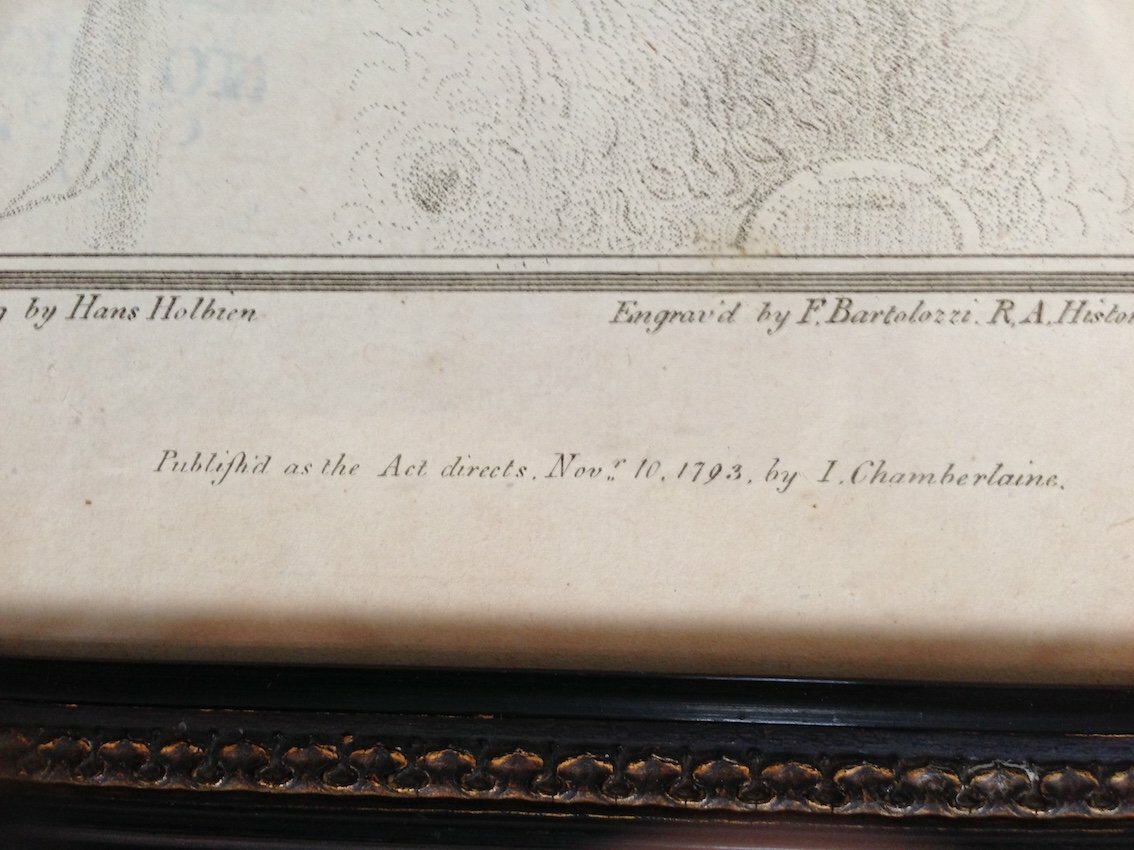 by Hans Holbien
Engrav'd by F. Bartolozzi. R. A. Histor
Publiſh'd as the Act directs. Novr. 10. 1793. by I. Chamberlaine.